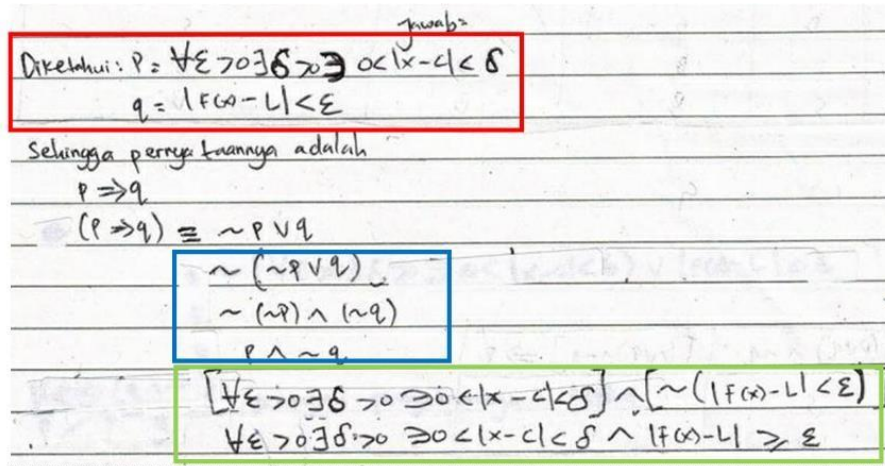 Jawab:
Diketahui: P = ∀ε>0 ∃δ>0 ∋ 0<|x-c|<δ
q = |F(x)-L|<ε
Sehingga pernyataannya adalah
P ⇒ q
(P ⇒ q) ≡ ~P ∨ q
~(~P ∨ q)
~(~P) ∧ (~q)
P ∧ ~q
[∀ε>0 ∃δ>0 ∋ 0<|x-c|<δ] ∧ [~(|F(x)-L|<ε)
∀ε>0 ∃δ>0 ∋ 0<|x-c|<δ ∧ |F(x)-L| ≥ ε